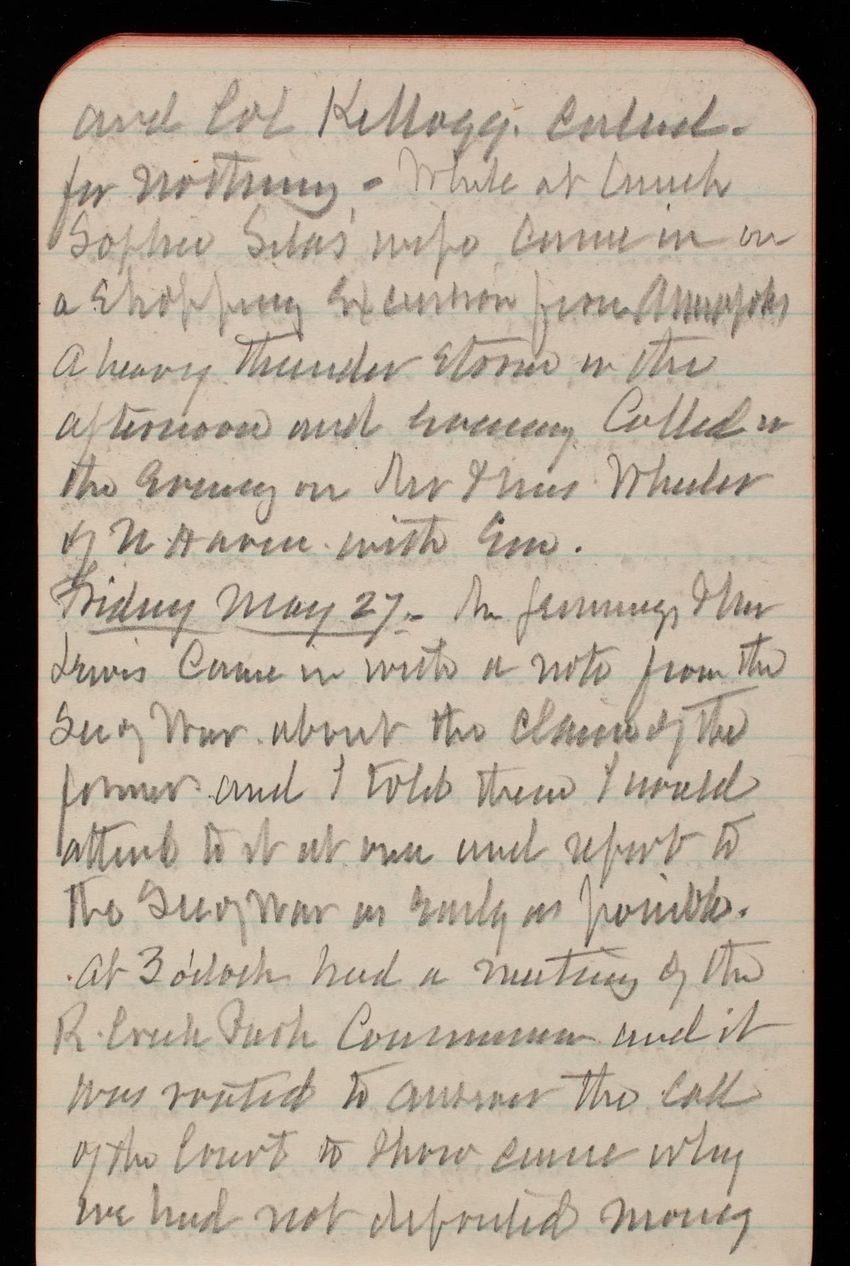 and Col Kellogg. Called
for nothing - While at lunch
Sophie Silas' wife came in on
a shopping excursion from Annapolis
A heavy thunder storm in the
afternoon and evening Called in
the evening on Mr & Mrs Wheeler
of N. Haven with Em.
Friday May 27. - Mr Jennings & Mr
Lewis Came in with a note from the
Sec of War about the claim of the
former and I told them I would
attend to it at once and report to
the Sec of War as early as possible.
At 3 o'clock had a meeting of the
R. Creek Park Commission and it
was voted to answer the call
of the Court to show cause why
we had not deposited money